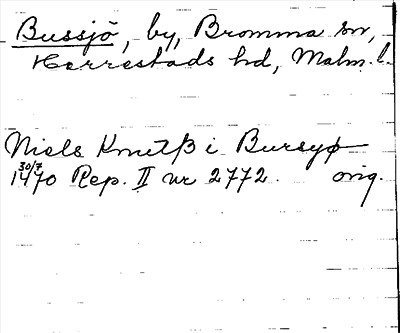 Bussjö, by, Bromma sn,
Herrestads hd, Malm. l.
Niels Knutß i Bursyø
1470 30/7 Rep. II nr 2772. orig.